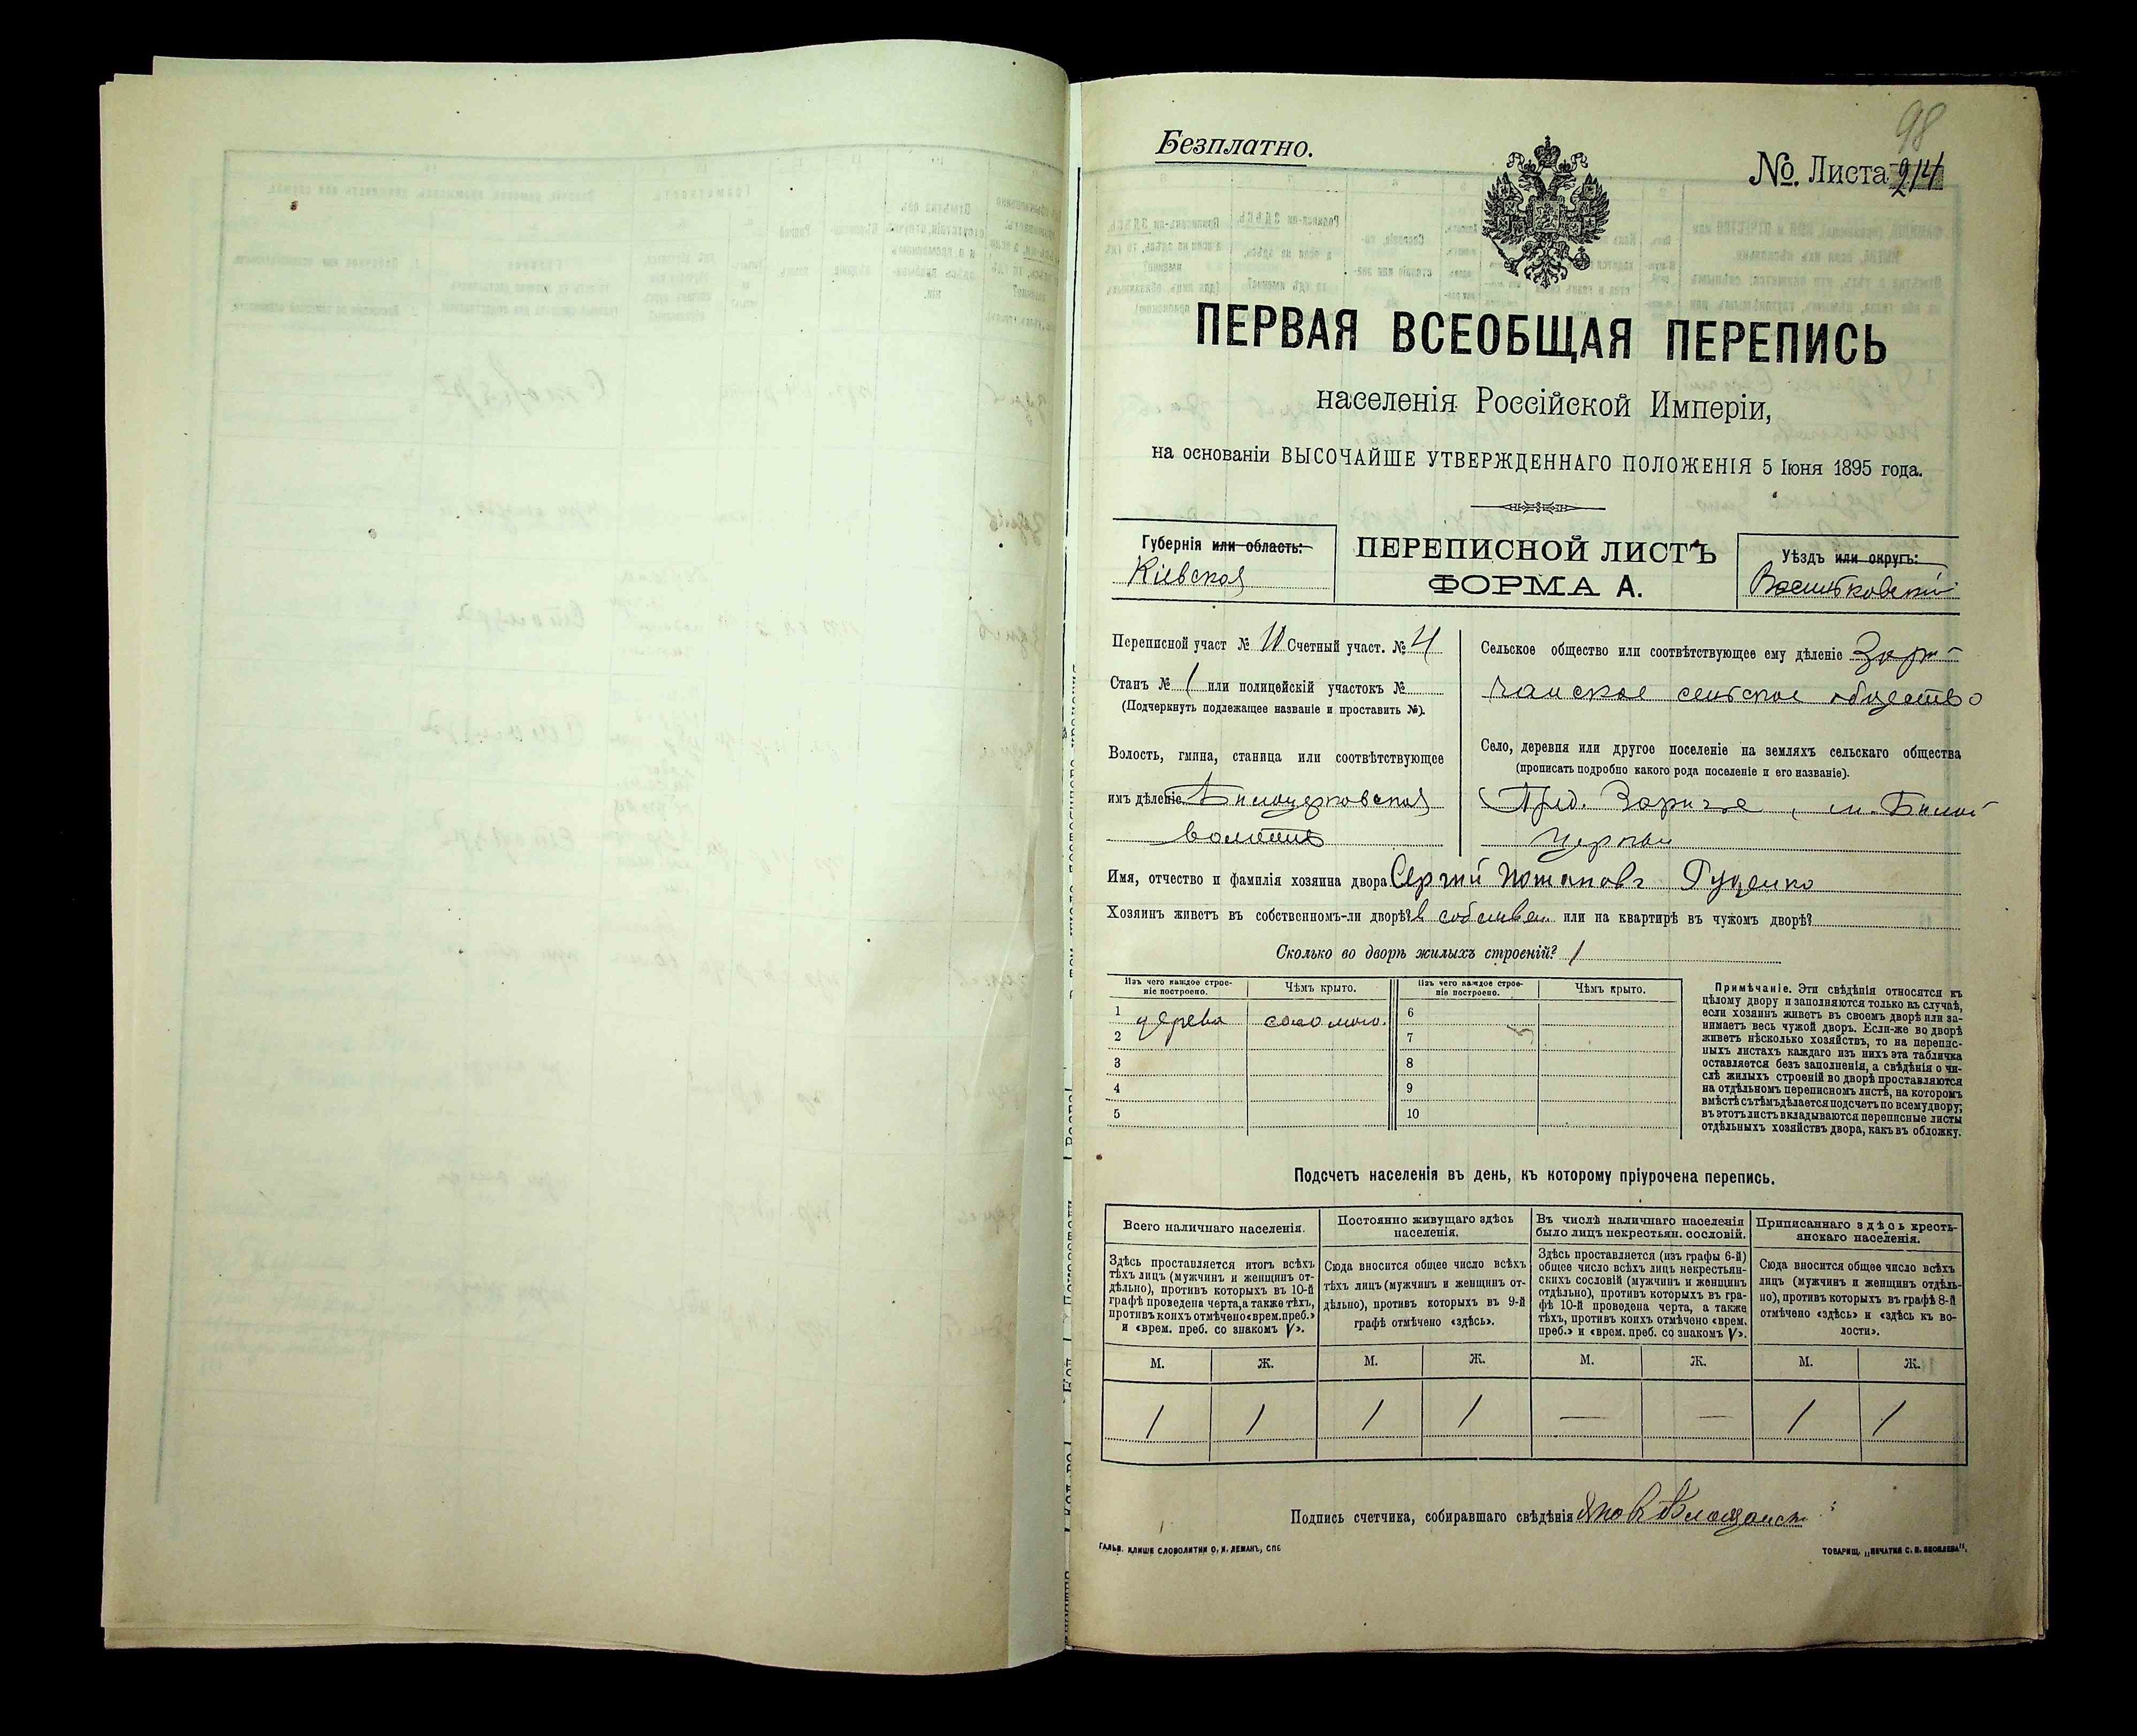 98
Безплатно.
№. Листа 214
ПЕРВАЯ ВСЕОБЩАЯ ПЕРЕПИСЬ
населенія Россійской Имперіи,
на основаніи ВЫСОЧАЙШЕ УТВЕРЖДЕННАГО ПОЛОЖЕНІЯ 5 Іюня 1895 года.
Губернія или область:
Кіевская
ПЕРЕПИСНОЙ ЛИСТЪ
ФОРМА А.
Уѣздъ или округъ:
Васильковскій
Переписной участ № Счетный участ. № 4
Станъ № 1 или полицейскій участокъ №
(Подчеркнуть подлежащее названіе и проставить №).
Волость, гмина, станица или соотвѣтствующее
имъ дѣленіе Билоцерковская
волость
Сельское общество или соотвѣтствующее ему дѣленіе Зари-
чанское сельское общество
Село, деревня или другое поселеніе на земляхъ сельскаго общества
(прописать подробно какого рода поселеніе и его названіе).
Пред. Заричье, м. Билой
Церкви
Имя, отчество и фамилія хозяина двора Сергій Потаповъ Гуценко
Хозяинъ живетъ въ собственномъ-ли дворѣ? в собствен. или на квартирѣ въ чужомъ дворѣ?
Сколько во дворѣ жилыхъ строеній? 1
Изъ чего каждое строе-
ніе построено.
Чѣмъ крыто.
Изъ чего каждое строе-
ніе построено.
Чѣмъ крыто.
1 дерева соломою. 6
2 7
3 8
4 9
5 10
Примѣчаніе. Эти свѣдѣнія относятся къ
цѣлому двору и заполняются только въ случаѣ,
если хозяинъ живетъ въ своемъ дворѣ или за-
нимаетъ весь чужой дворъ. Если-же во дворѣ
живетъ нѣсколько хозяйствъ, то на перепис-
ныхъ листахъ каждаго изъ нихъ эта табличка
оставляется безъ заполненія, а свѣдѣнія о чи-
слѣ жилыхъ строеній во дворѣ проставляются
на отдѣльномъ переписномъ листѣ, на которомъ
вмѣстѣ съ тѣмъ дѣлается подсчетъ по всему двору;
въ этотъ листъ вкладываются переписные листы
отдѣльныхъ хозяйствъ двора, какъ въ обложку.
Подсчетъ населенія въ день, къ которому пріурочена перепись.
Всего наличнаго населенія.
Здѣсь проставляется итогъ всѣхъ
тѣхъ лицъ (мужчинъ и женщинъ от-
дѣльно), противъ которыхъ въ 10-й
графѣ проведена черта, а также тѣхъ,
противъ коихъ отмѣчено «врем. преб.»
и «врем. преб. со знакомъ V».
Постоянно живущаго здѣсь
населенія.
Сюда вносится общее число всѣхъ
тѣхъ лицъ (мужчинъ и женщинъ от-
дѣльно), противъ которыхъ въ 9-й
графѣ отмѣчено «здѣсь».
Въ числѣ наличнаго населенія
было лицъ некрестьян. сословій.
Здѣсь проставляется (изъ графы 6-й)
общее число всѣхъ лицъ некрестьян-
скихъ сословій (мужчинъ и женщинъ
отдѣльно), противъ которыхъ въ гра-
фѣ 10-й проведена черта, а также
тѣхъ, противъ коихъ отмѣчено «врем.
преб.» и «врем. преб. со знакомъ V».
Приписаннаго здѣсь кресть-
янскаго населенія.
Сюда вносится общее число всѣхъ
лицъ (мужчинъ и женщинъ отдѣль-
но), противъ которыхъ въ графѣ 8-й
отмѣчено «здѣсь» и «здѣсь къ во-
лости».
М. Ж. М. Ж. М. Ж. М. Ж.
1 1 1 1 — — 1 1
Подпись счетчика, собиравшаго свѣдѣнія
ГАЛЬВ. КЛИШЕ СЛОВОЛИТНИ О. И. ЛЕМАНЪ, СПБ
ТОВАРИЩ. „ПЕЧАТНЯ С. П. ЯКОВЛЕВА".